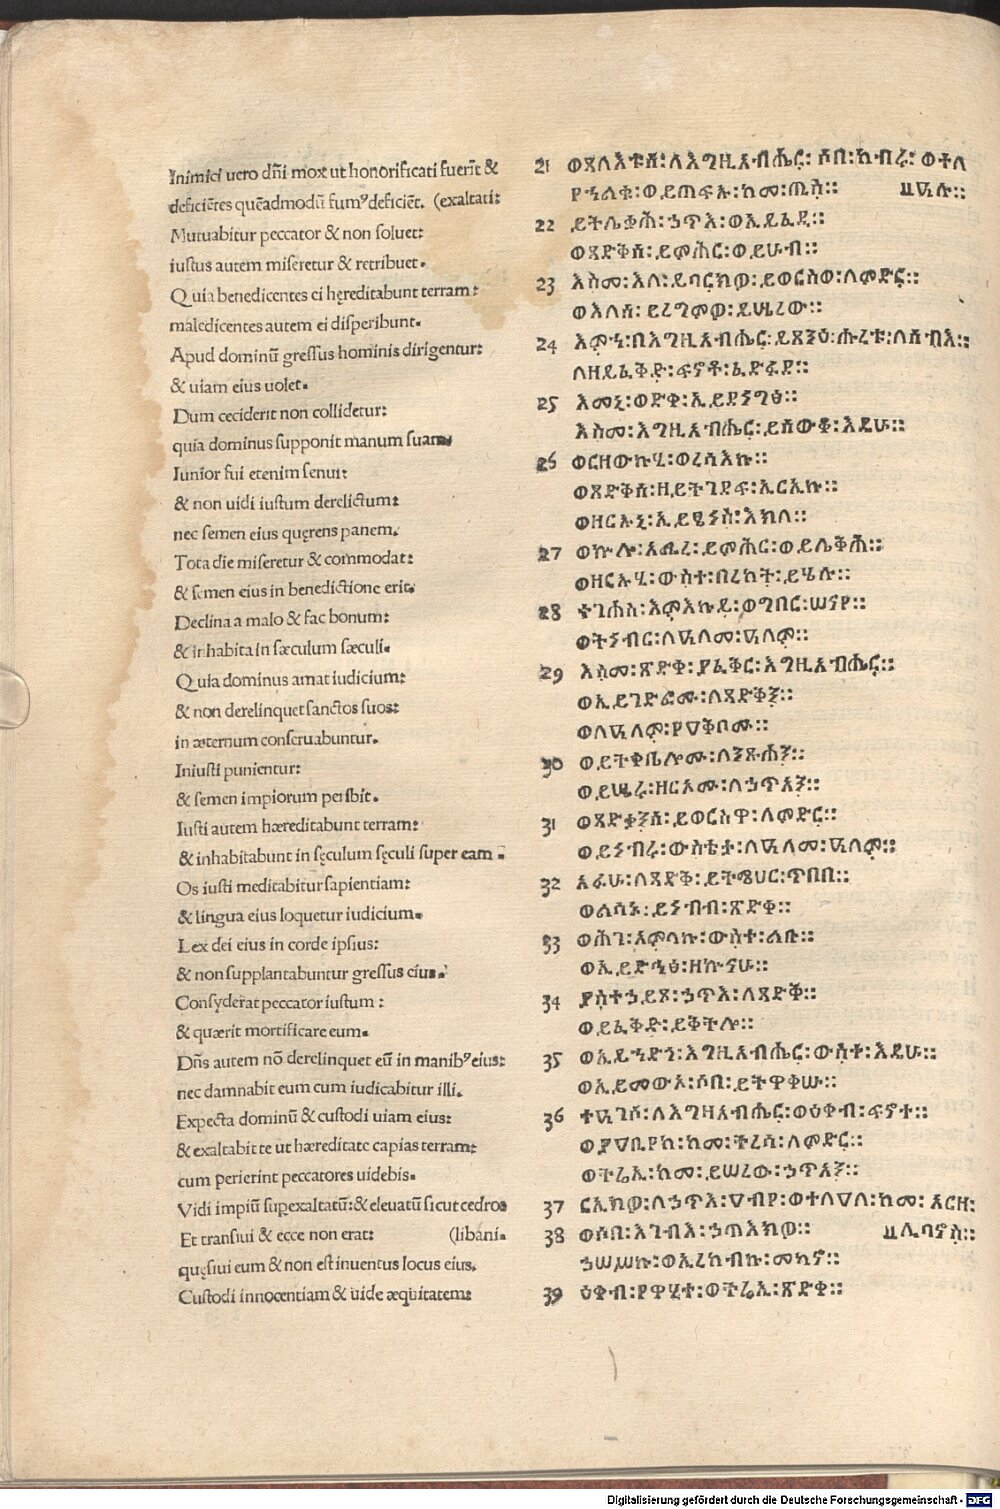 Inimici uero dñi mox ut honorificati fuerit̃ &
deficiẽtes quẽadmodũ fumꝰ deficiẽt. (exaltati:
Mutuabitur peccator & non soluet:
iustus autem miseretur & retribuet.
Quia benedicentes ei hęreditabunt terram:
maledicentes autem ei disperibunt.
Apud dominũ gressus hominis dirigentur:
& uiam eius uolet.
Dum ceciderit non collidetur:
quia dominus supponit manum suam.
Iunior fui etenim senui:
& non uidi iustum derelictum:
nec semen eius quęrens panem.
Tota die miseretur & commodat:
& semen eius in benedictione erit.
Declina a malo & fac bonum:
& inhabita in sæculum sæculi.
Quia dominus amat iudicium:
& non derelinquet sanctos suos:
in æternum conseruabuntur.
Iniusti punientur:
& semen impiorum peribit.
Iusti autem hæreditabunt terram:
& inhabitabunt in sęculum sęculi super eam.
Os iusti meditabitur sapientiam:
& lingua eius loquetur iudicium.
Lex dei eius in corde ipsius:
& non supplantabuntur gressus eius.
Consyderat peccator iustum:
& quærit mortificare eum.
Dñs autem nõ derelinquet eũ in manibꝰ eius:
nec damnabit eum cum iudicabitur illi.
Expecta dominũ & custodi uiam eius:
& exaltabit te ut hæreditate capias terram:
cum perierint peccatores uidebis.
Vidi impiũ supexaltatũ: & eleuatũ sicut cedros
Et transiui & ecce non erat: (libani.
quęsiui eum & non est inuentus locus eius.
Custodi innocentiam & uide æquitatem:
21 ወጻላእቱሰ፡ለእግዚአብሔር፡ ሶበ፡ከብሩ፡ ወተለ
የኀልቁ፡ወይጠፍኡ፡ከመ፡ጢስ፡፡ ዓሉ፡፡
22 ይትሌቃሕ፡ኃጥእ፡ወኢይፈዲ፡፡
ወጻድቅሰ፡ይምሕር፡ወይሁብ፡፡
23 እስመ፡እለ፡ይባርክዎ፡ይወርስዋ፡ለምድር፡፡
ወእለሰ፡ይረግምዎ፡ይሤረው፡፡
24 እምኀ፡በእግዚአብሔር፡ይጸንዕ፡ሑረቱ፡ለሰብእ፡፡
ለዘይፈቅድ፡ፍኖቶ፡ፈድፋደ፡፡
25 እመኒ፡ወድቀ፡ኢይደነግፅ፡፡
እስመ፡እግዚአብሔር፡ይሰውቆ፡እዴሁ፡፡
26 ወርዘውኩሂ፡ወረሳእኩ፡፡
ወጻድቅሰ፡ዘይትገደፍ፡ኢርኢኩ፡፡
ወዘርኡኒ፡ኢይጼነስ፡እክለ፡፡
27 ወኵሎ፡አሚረ፡ይምሕር፡ወይሌቅሕ፡፡
ወዘርኡሂ፡ውስተ፡በረከት፡ይሄሉ፡፡
28 ተገሐስ፡እምእኩይ፡ወግበር፡ሠናየ፡፡
ወትነብር፡ለዓለመ፡ዓለም፡፡
29 እስመ፡ጽድቀ፡ያፈቅር፡እግዚአብሔር፡፡
ወኢይገድፎሙ፡ለጻድቃን፡፡
ወለዓለም፡የዐቅቦሙ፡፡
30 ወይትቀቤሎሙ፡ለንጹሓን፡፡
ወይሤሩ፡ዘርኦሙ፡ለኃጥኣን፡፡
31 ወጻድቃንሰ፡ይወርስዋ፡ለምድር፡፡
ወይነብሩ፡ውስቴታ፡ለዓለመ፡ዓለም፡፡
32 አፉሁ፡ለጻድቅ፡ይትሜሀር፡ጥበበ፡፡
ወልሳኑ፡ይነብብ፡ጽድቀ፡፡
33 ወሕገ፡አምላኩ፡ውስተ፡ልቡ፡፡
ወኢይድኅፅ፡ዘኰናሁ፡፡
34 ያስተኃይጽ፡ኃጥእ፡ለጻድቅ፡፡
ወይፈቅድ፡ይቅትሎ፡፡
35 ወኢይኀድጎ፡እግዚአብሔር፡ውስተ፡እዴሁ፡፡
ወኢይመውኦ፡ሶበ፡ይትዋቀሡ፡፡
36 ተዓገሶ፡ለእግዚአብሔር፡ወዕቀብ፡ፍኖተ፡፡
ወያዐቢየከ፡ከመ፡ትረሳ፡ለምድር፡፡
ወትሬኢ፡ከመ፡ይሠረው፡ኃጥኣን፡፡
37 ርኢክዎ፡ለኃጥእ፡ዐብየ፡ወተለዐለ፡ከመ፡ አርዘ፡
38 ወሶበ፡እገብእ፡ኃጣእክዎ፡፡ ሊባኖስ፡፡
ኃሠሥኩ፡ወኢረከብኩ፡መካኖ፡፡
39 ዕቀብ፡የዋሂተ፡ወትሬኢ፡ጽድቀ፡፡
Digitalisierung gefördert durch die Deutsche Forschungsgemeinschaft - DFG